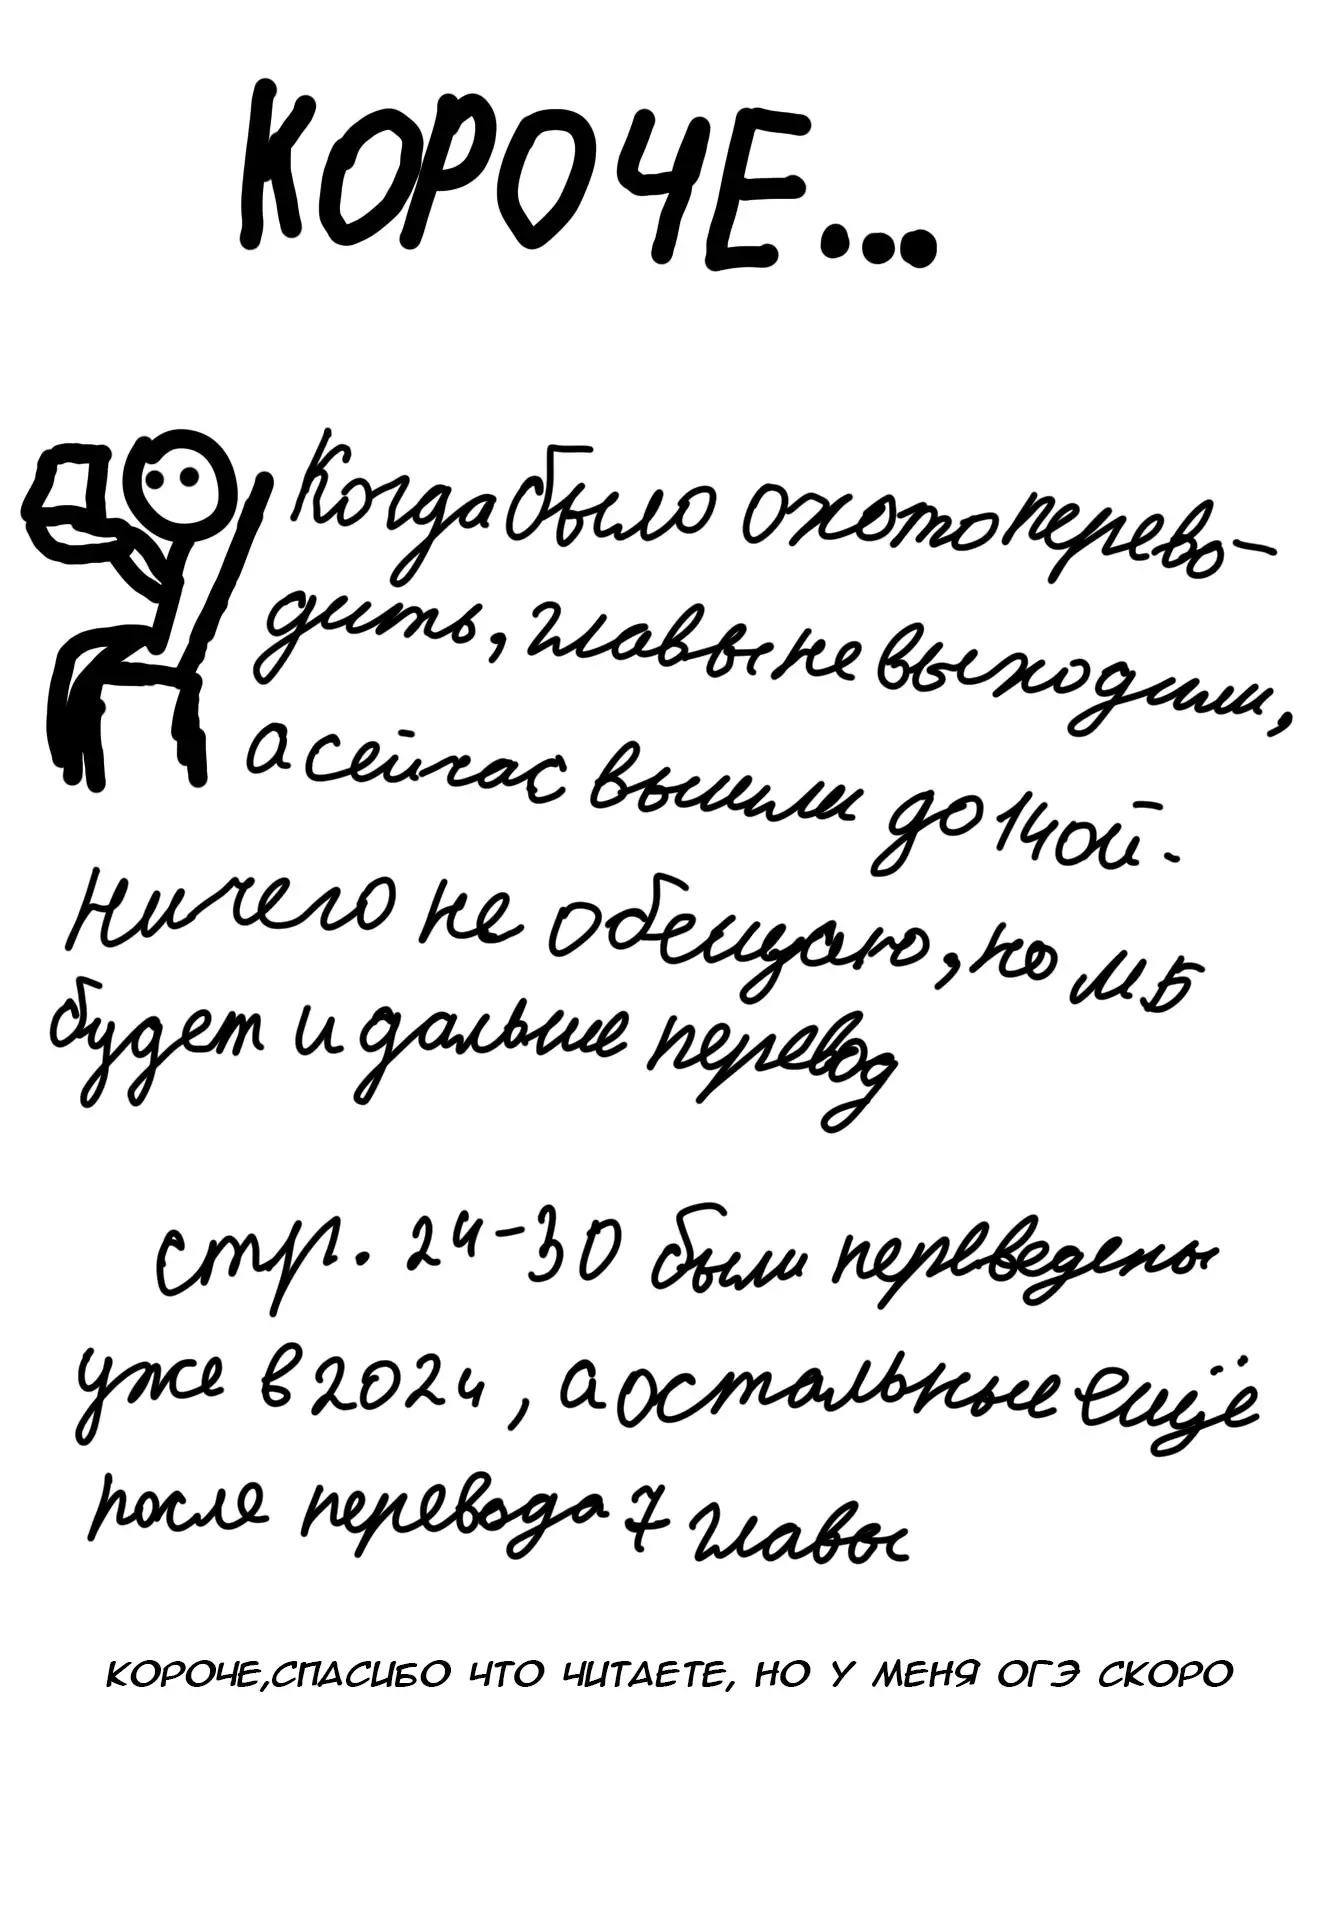 КОРОЧЕ...
Когда было охото перево-
дить, главы не выходили,
а сейчас вышли до 14ой.
Ничего не обещаю, но мб
будет и дальше перевод
стр. 24-30 были переведены
уже в 2024, а остальные ещё
после перевода 7 главы
КОРОЧЕ,СПАСИБО ЧТО ЧИТАЕТЕ, НО У МЕНЯ ОГЭ СКОРО